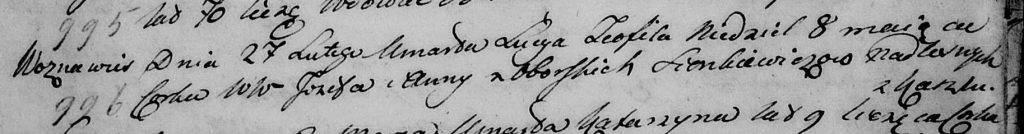 995 lad 70 licząc
Woznawiec Dnia 27 Lutego Umarła Lucya Teofila Niedziel 8 maiąca
996 Corka WW Jozefa i Anny z Oborskich Sienkiewiczow Nadlesnych
z
Umarła Katarzyna lad 9 licząca Corka